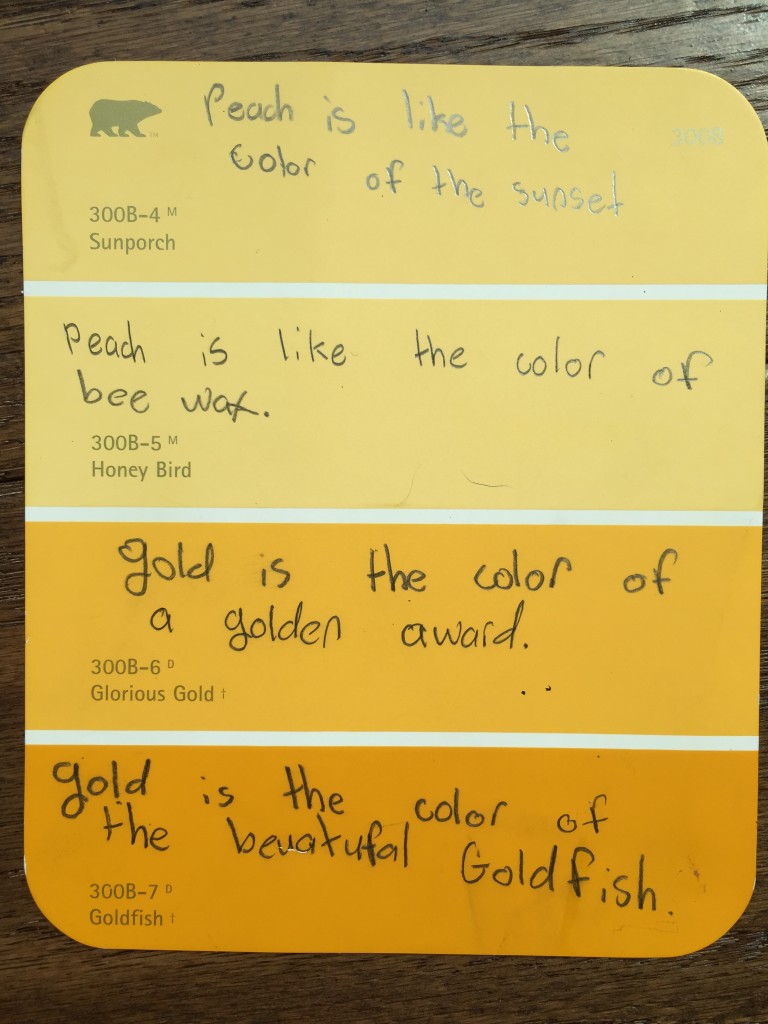 Peach is like the
color of the sunset
300B
300B-4 M
Sunporch
Peach is like the color of
bee wax.
300B-5 M
Honey Bird
gold is the color of
a golden award.
300B-6 D
Glorious Gold †
gold is the color of
the beuatufal Goldfish.
300B-7 D
Goldfish †